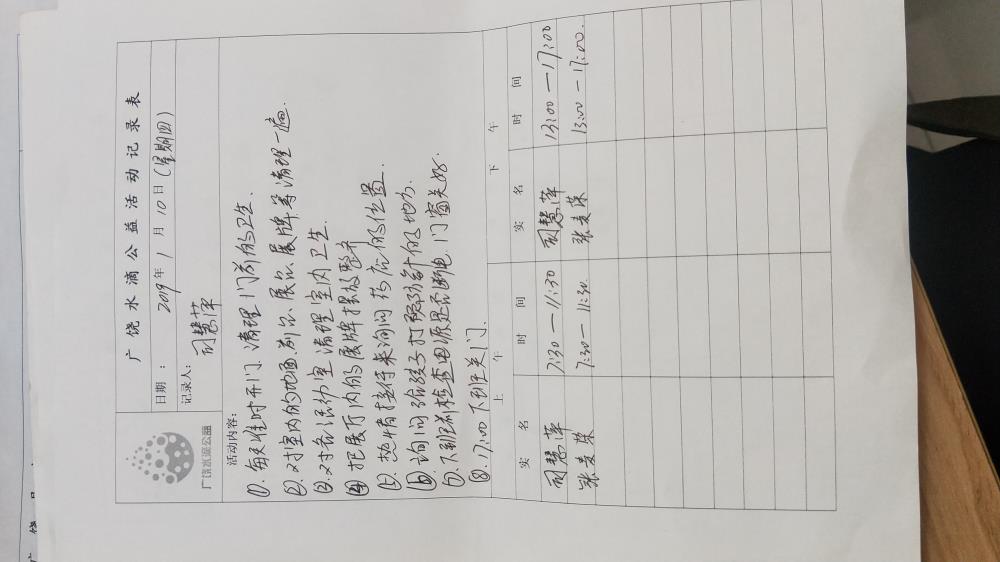 广饶水滴公益活动记录表
广饶水滴公益
日期： 2019年 1 月 10 日 (星期四)
记录人： 司慧萍
活动内容：
①. 每天准时开门. 清理门前的卫生.
②. 对室内的地面. 前台. 展台. 展牌. 等清理一遍.
③. 对各活动室清理室内卫生.
④ 把展厅内的展牌摆放整齐
⑤. 热情接待来询问药店的位置.
⑥. 询问给孩子打预防针的地方.
⑦. 下班前检查电源是否断电. 门窗关好.
⑧. 17:00 下班关门.
上 午 下 午
实 名 时 间 实 名 时 间
司慧萍 7:30 — 11:30 司慧萍 13:00 — 17:00
张麦荣 7:30 — 11:30. 张麦荣 13:00 — 17:00.
广 饶